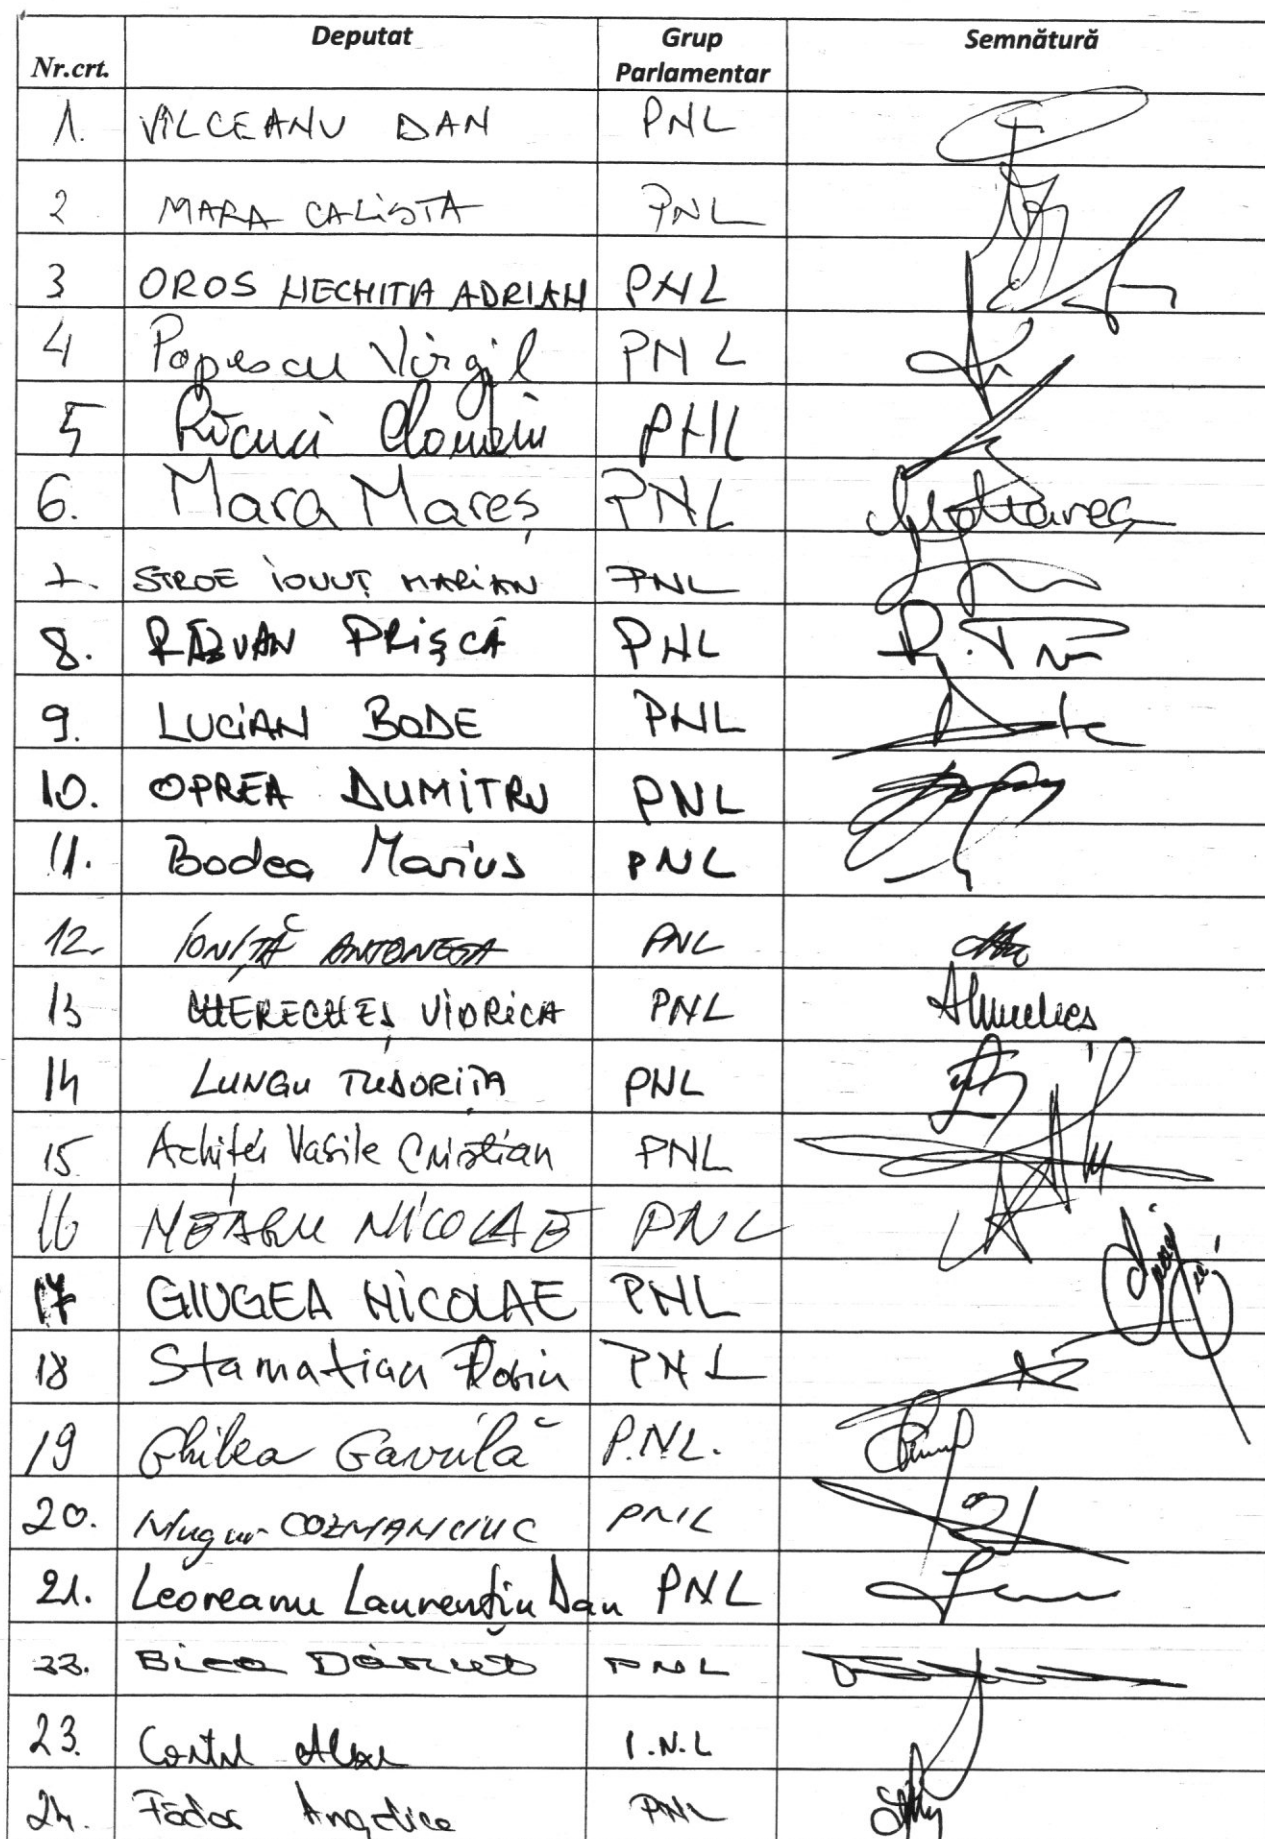 Nr.crt. Deputat Grup Parlamentar Semnătură
1. VÎLCEANU DAN PNL
2 MARA CALISTA PNL
3 OROS NECHITA ADRIAN PNL
4 Popescu Virgil PNL
5 PNL
6. Mara Mareș PNL
7. STROE IONUȚ MARIAN PNL
8. RĂZVAN PRIȘCĂ PNL
9. LUCIAN BODE PNL
10. OPREA DUMITRU PNL
11. Bodea Marius PNL
12. IONIȚĂ ANTONETA PNL
13 CHERECHEȘ VIORICA PNL
14 LUNGU TUDORIȚA PNL
15 Achiței Vasile Cristian PNL
16 NEAGU NICOLAE PNL
17 GIUGEA NICOLAE PNL
18 Stamatian Florin PNL
19 Ghilea Gavrilă P.N.L.
20. Mugur COZMANCIUC PNL
21. Leoreanu Laurențiu Dan PNL
22. Bica PNL
23. P.N.L
24. Fădor Angelica PNL